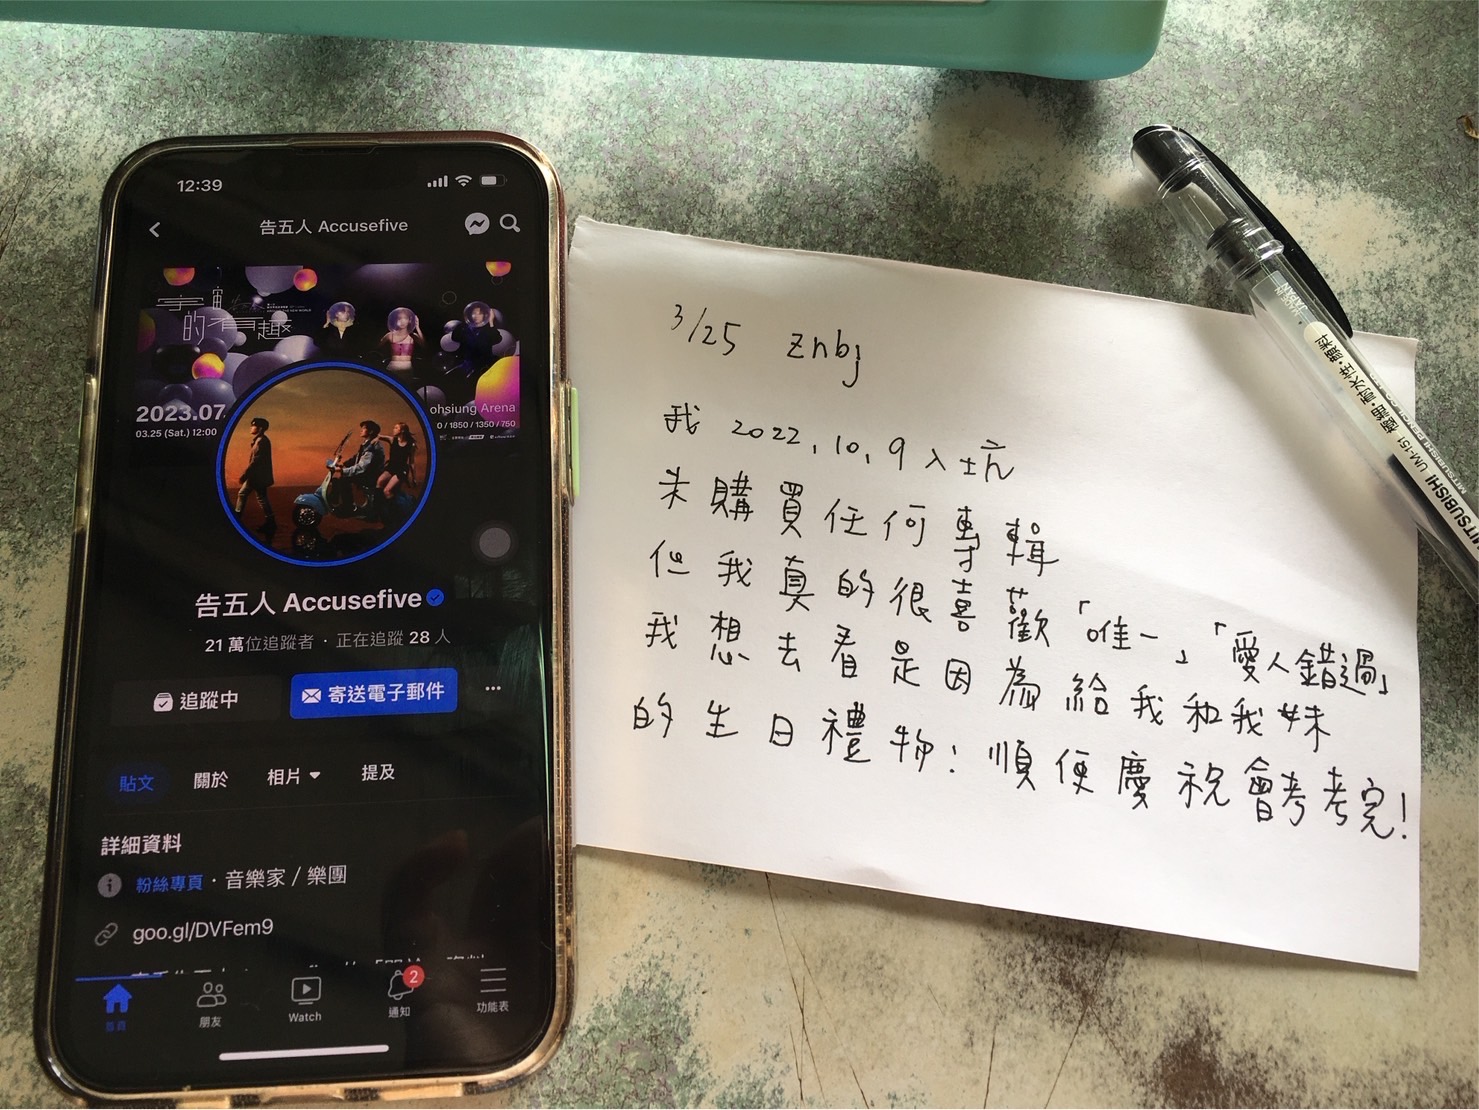 12:39
告五人 Accusefive
宇宙
的有趣
2023.07
03.25 (Sat.) 12:00
ohsiung Arena
0 / 1850 / 1350 / 750
告五人 Accusefive
21 萬位追蹤者 · 正在追蹤 28 人
追蹤中
寄送電子郵件
貼文 關於 相片 提及
詳細資料
粉絲專頁 · 音樂家 / 樂團
goo.gl/DVFem9
2
首頁 朋友 Watch 通知 功能表
3/25 znbj
我 2022,10,9入坑
未購買任何專輯
但我真的很喜歡「唯一」「愛人錯過」
我想去看是因為給我和我妹
的生日禮物!順便慶祝會考考完!
極細・耐水性・顔料
MITSUBISHI UM-151